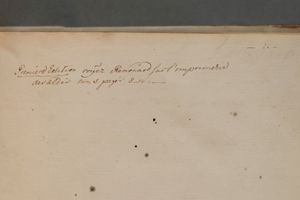 Premiere Edition voyez Renouard sur l'imprimerie
des aldes tom. 1. page